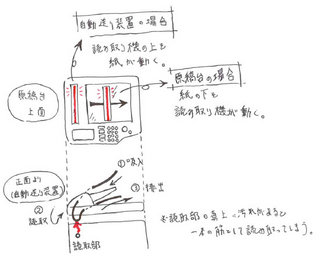 自動送り装置の場合
読み取り機の上を
紙が動く。
原稿台の場合
紙の下を
読み取り機が動く。
原稿台
上面
正面より
(自動送り装置)
①吸入
②
読取
③排出
読取部
※読取部の真上に汚れがあると
一本の筋として読み取ってしまう。